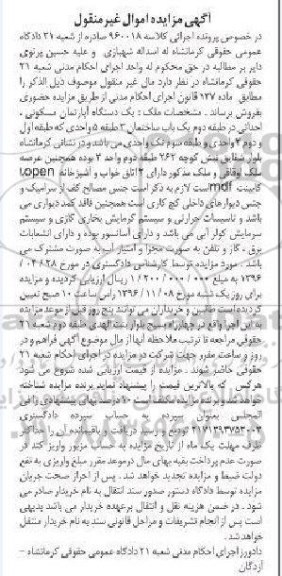 آگهی مزایده اموال غیر منقول
در خصوص پرونده اجرائی کلاسه ۹۶۰۰۱۸ صادره از شعبه ۲۱ دادگاه
عمومی حقوقی کرمانشاه له اسداله شهبازی و علیه حسین پرتوی
دایر بر مطالبه در حق محکوم له واحد اجرای احکام مدنی شعبه ۲۱
حقوقی کرمانشاه در نظر دارد مال غیر منقول موصوف ذیل الذکر را
مطابق ماده ۱۳۷ قانون اجرای احکام مدنی از طریق مزایده حضوری
بفروش برساند. مشخصات ملک: یک دستگاه آپارتمان مسکونی،
احداثی در طبقه دوم یک باب ساختمان ۳ طبقه ۵ واحدی که طبقه اول
و دوم ۲ واحدی و طبقه سوم تک واحدی می باشد و در نشانی کرمانشاه
بلوار شقایق نبش کوچه ۲۶۲ طبقه دوم واحد ۳ بوده همچنین عرصه
ملک اوقافی و ملک مذکور دارای ۲ اتاق خواب و آشپزخانه open،
کابینت mdf است لازم به ذکر است جنس مصالح کف از سرامیک و
جنس دیوارهای داخلی گچ کاری است همچنین فاقد کمد دیواری می
باشد و تاسیسات حرارتی و سیستم گرمایش بخاری گازی و سیستم
سرمایش کولر آبی می باشد و دارای آسانسور بوده و دارای انشعابات
برق، گاز و تلفن به صورت مجزا و امتیاز آب به صورت مشترک می
باشد. مورد مزایده توسط کارشناس دادگستری در مورخ ۰۴/۲۸/
۱۳۹۶ به مبلغ ۱/۲۰۰/۰۰۰/۰۰۰ ریال ارزیابی گردیده و مزایده
برای روز یک شنبه مورخ ۱۳۹۶/۱۱/۰۸ راس ساعت ۱۰ صبح تعیین
گردیده است طالبین و خریداران می توانند پنج روز قبل از موعد مزایده
به این اجرا واقع در چهارراه بسیج بلوار بنت الهدی طبقه دوم شعبه ۲۱
حقوقی مراجعه تا ترتیب ملاحظه آنها از مال موضوع آگهی فراهم و در
روز و ساعت مقرر جهت شرکت در مزایده در اجرای احکام شعبه ۲۱
حقوقی حاضر شوند. مزایده از قیمت ارزیابی شده شروع می شود
هرکس که بالاترین قیمت را پیشنهاد نماید برنده مزایده شناخته
خواهد شد و برنده مزایده مکلف است ۱۰ درصد بهای پیشنهادی را فی
المجلس بعنوان سپرده به حساب سپرده دادگستری
۲۱۷۱۲۹۳۷۵۲۰۰۳ تودیع و رسید دریافت و باقیمانده آن را حداکثر
ظرف مهلت یک ماه از تاریخ مزایده به حساب مزبور واریز کند در
صورت عدم پرداخت بقیه بهای در موعد مقرر مبلغ واریزی به نفع
دولت ضبط و مزایده تجدید خواهد شد. پس از احراز صحت جریان
مزایده توسط دادگاه دستور صدور سند انتقال به نام خریدار صادر می
شود. در ضمن هزینه نقل و انتقال برعهده خریدار می باشد بدیهی
است پس از انجام تشریفات و مراحل قانونی سند به نام خریدار منتقل
خواهد شد.
دادورز اجرای احکام مدنی شعبه ۲۱ دادگاه عمومی حقوقی کرمانشاه -
آزدگان